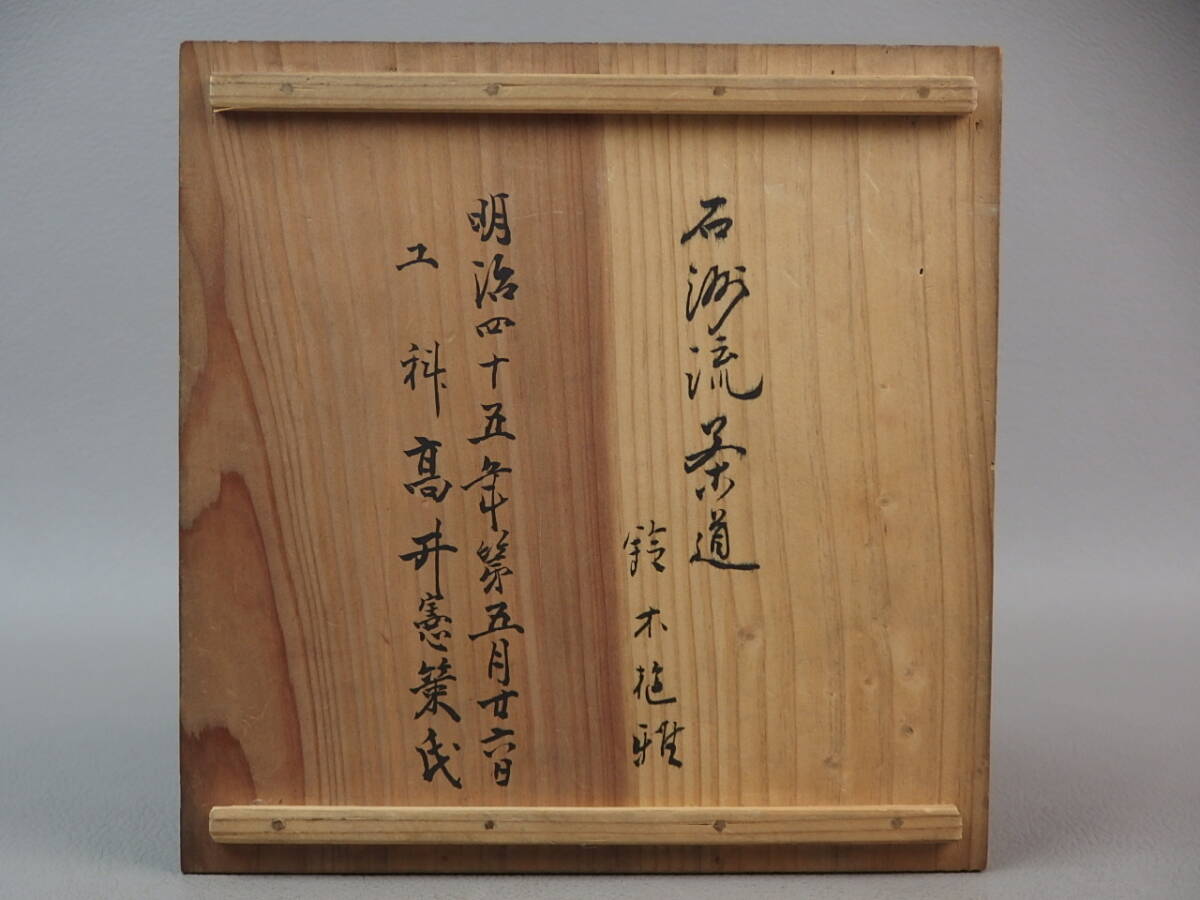 石洲流茶道
鈴木極雅
明治四十五年第五月廿六日
工科高井憲策氏